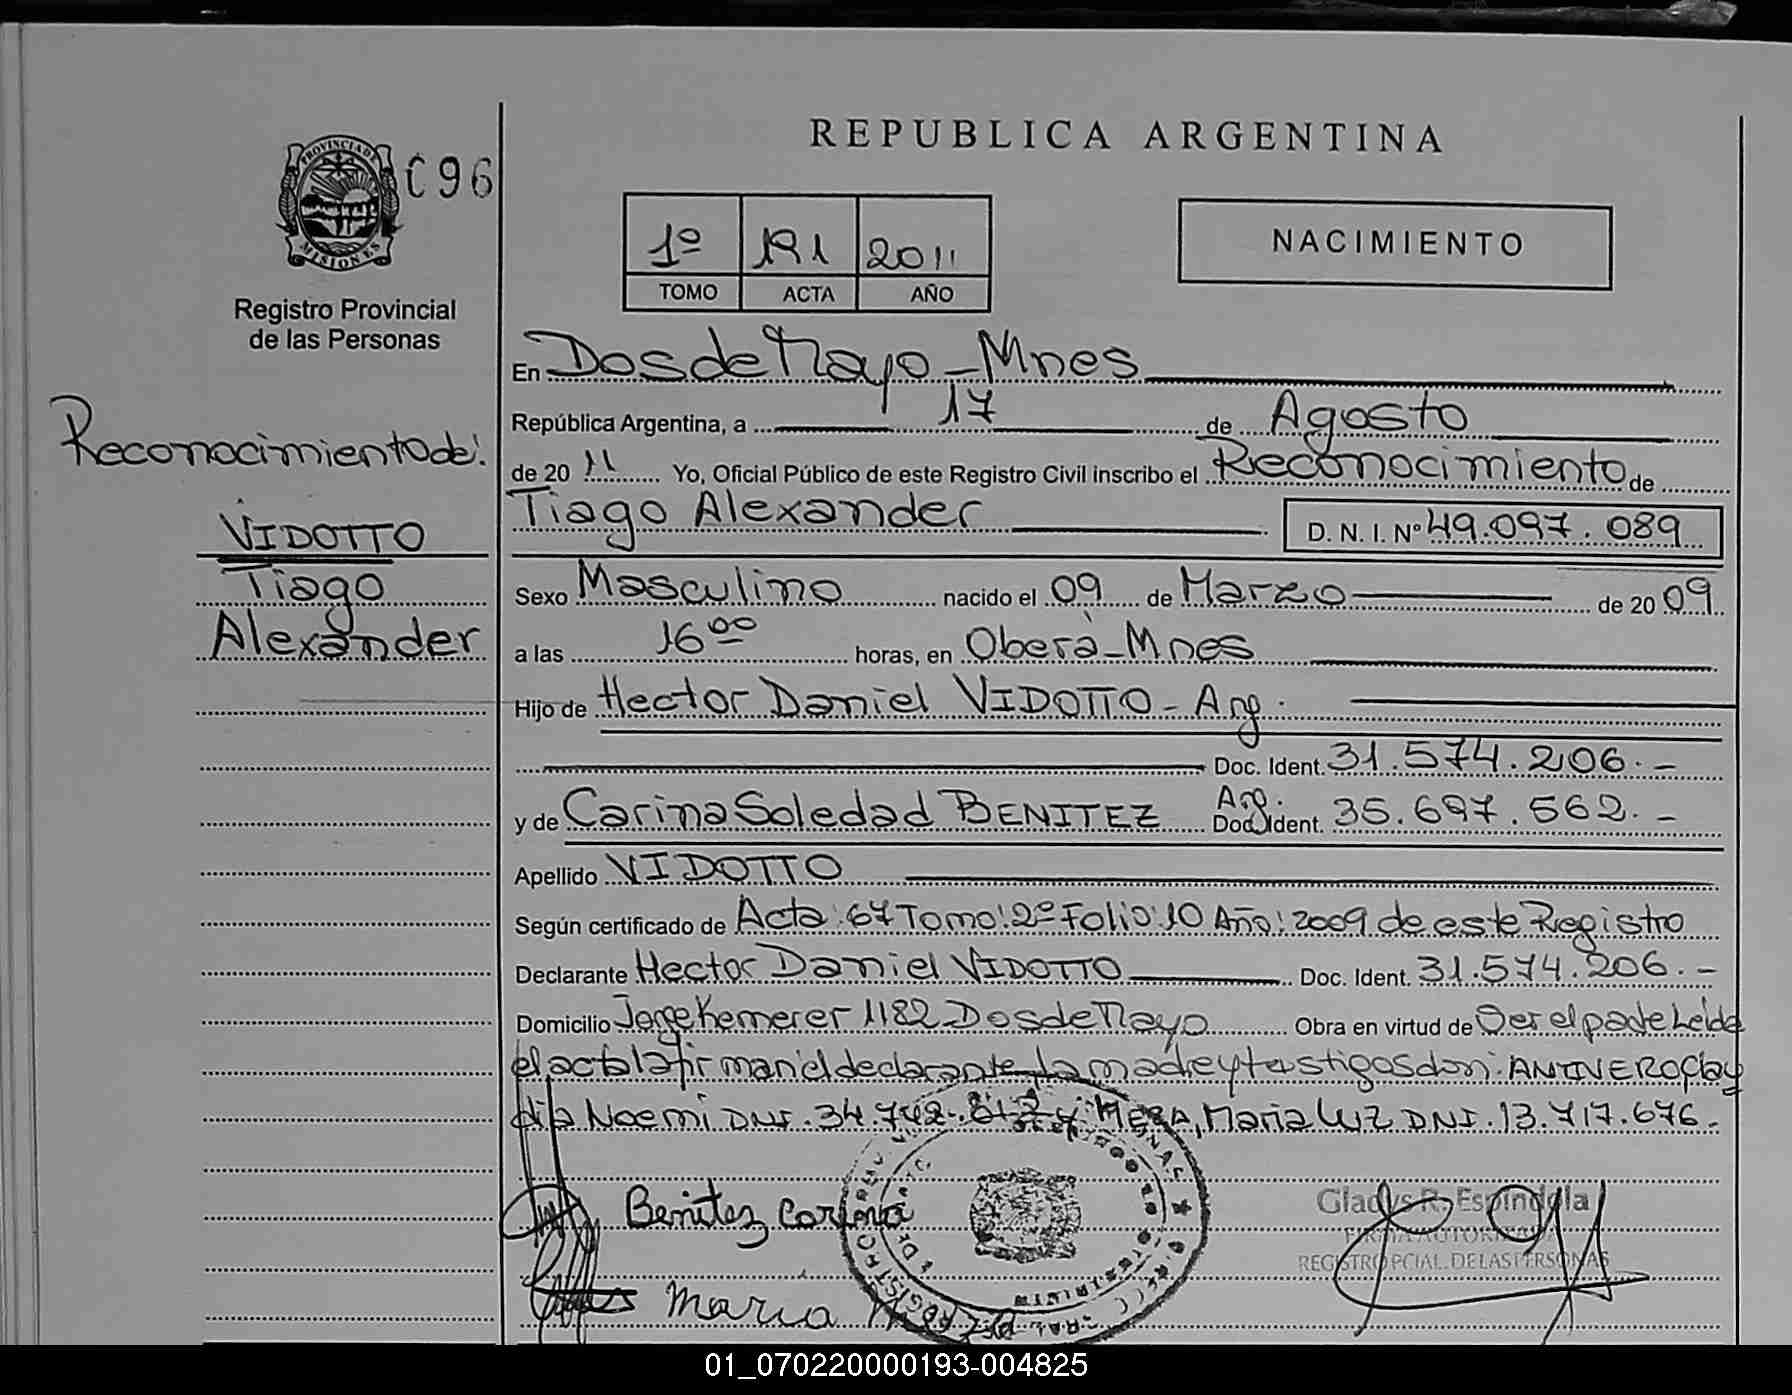 REPUBLICA ARGENTINA
PROVINCIA DE
MISIONES
C96
Registro Provincial
de las Personas
1º 191 2011
TOMO ACTA AÑO
NACIMIENTO
En Dos de Mayo - Mnes
República Argentina, a 17 de Agosto
de 20 11 Yo, Oficial Público de este Registro Civil inscribo el Reconocimiento de
Tiago Alexander D. N. I. Nº 49.097.089
Reconocimiento de:
VIDOTTO
Tiago
Alexander
Sexo Masculino nacido el 09 de Marzo de 20 09
a las 16 00 horas, en Oberá - Mnes
Hijo de Hector Daniel VIDOTTO - Arg.
Doc. Ident. 31.574.206.-
y de Carina Soledad BENITEZ Arg. Doc. Ident. 35.697.562.-
Apellido VIDOTTO
Según certificado de Acta: 67 Tomo: 2º Folio: 10 Año: 2009 de este Registro
Declarante Hector Daniel VIDOTTO Doc. Ident. 31.574.206.-
Domicilio Jorge Kemerer 1182 Dos de Mayo Obra en virtud de Ser el padre Leida
el acta la firman el declarante la madre y testigos don: ANTIVERO Clau
dia Noemi DNI. 34.742. y MEZA, Maria Luz DNI. 13.717.676.-
Benitez Carina
Maria
Gladys R. Espindola
FIRMA AUTORIZADA
REGISTRO PCIAL. DE LAS PERSONAS
01_070220000193-004825